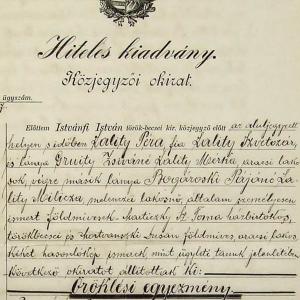 Hiteles kiadvány.
Közjegyzői okirat.
ügyszám.
Előttem Istvánfi István török-becsei kir. közjegyző előtt az aluljegyzett
helyen s időben Lality Péra, fia Lality Szvetozár,
és lánya Gruity Zsiváné Lality Merka, aracsi lako-
sok, végre másik lánya Bogároski Pájáné La-
lity Milicza melenczei lakosnő, általam személyesen
ismert földmívesek Maticzky St. Toma
törökbecsei és földmíves, aracsi lakos,
kiket hasonlókép ismerek, mint ügyleti tanuk jelenlétében
következő okiratot állítottam ki:
Öröklési egyezmény.